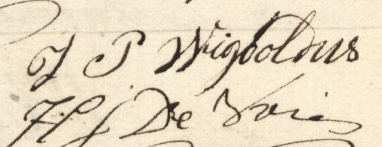 J P Wigboldus
H J De Vries